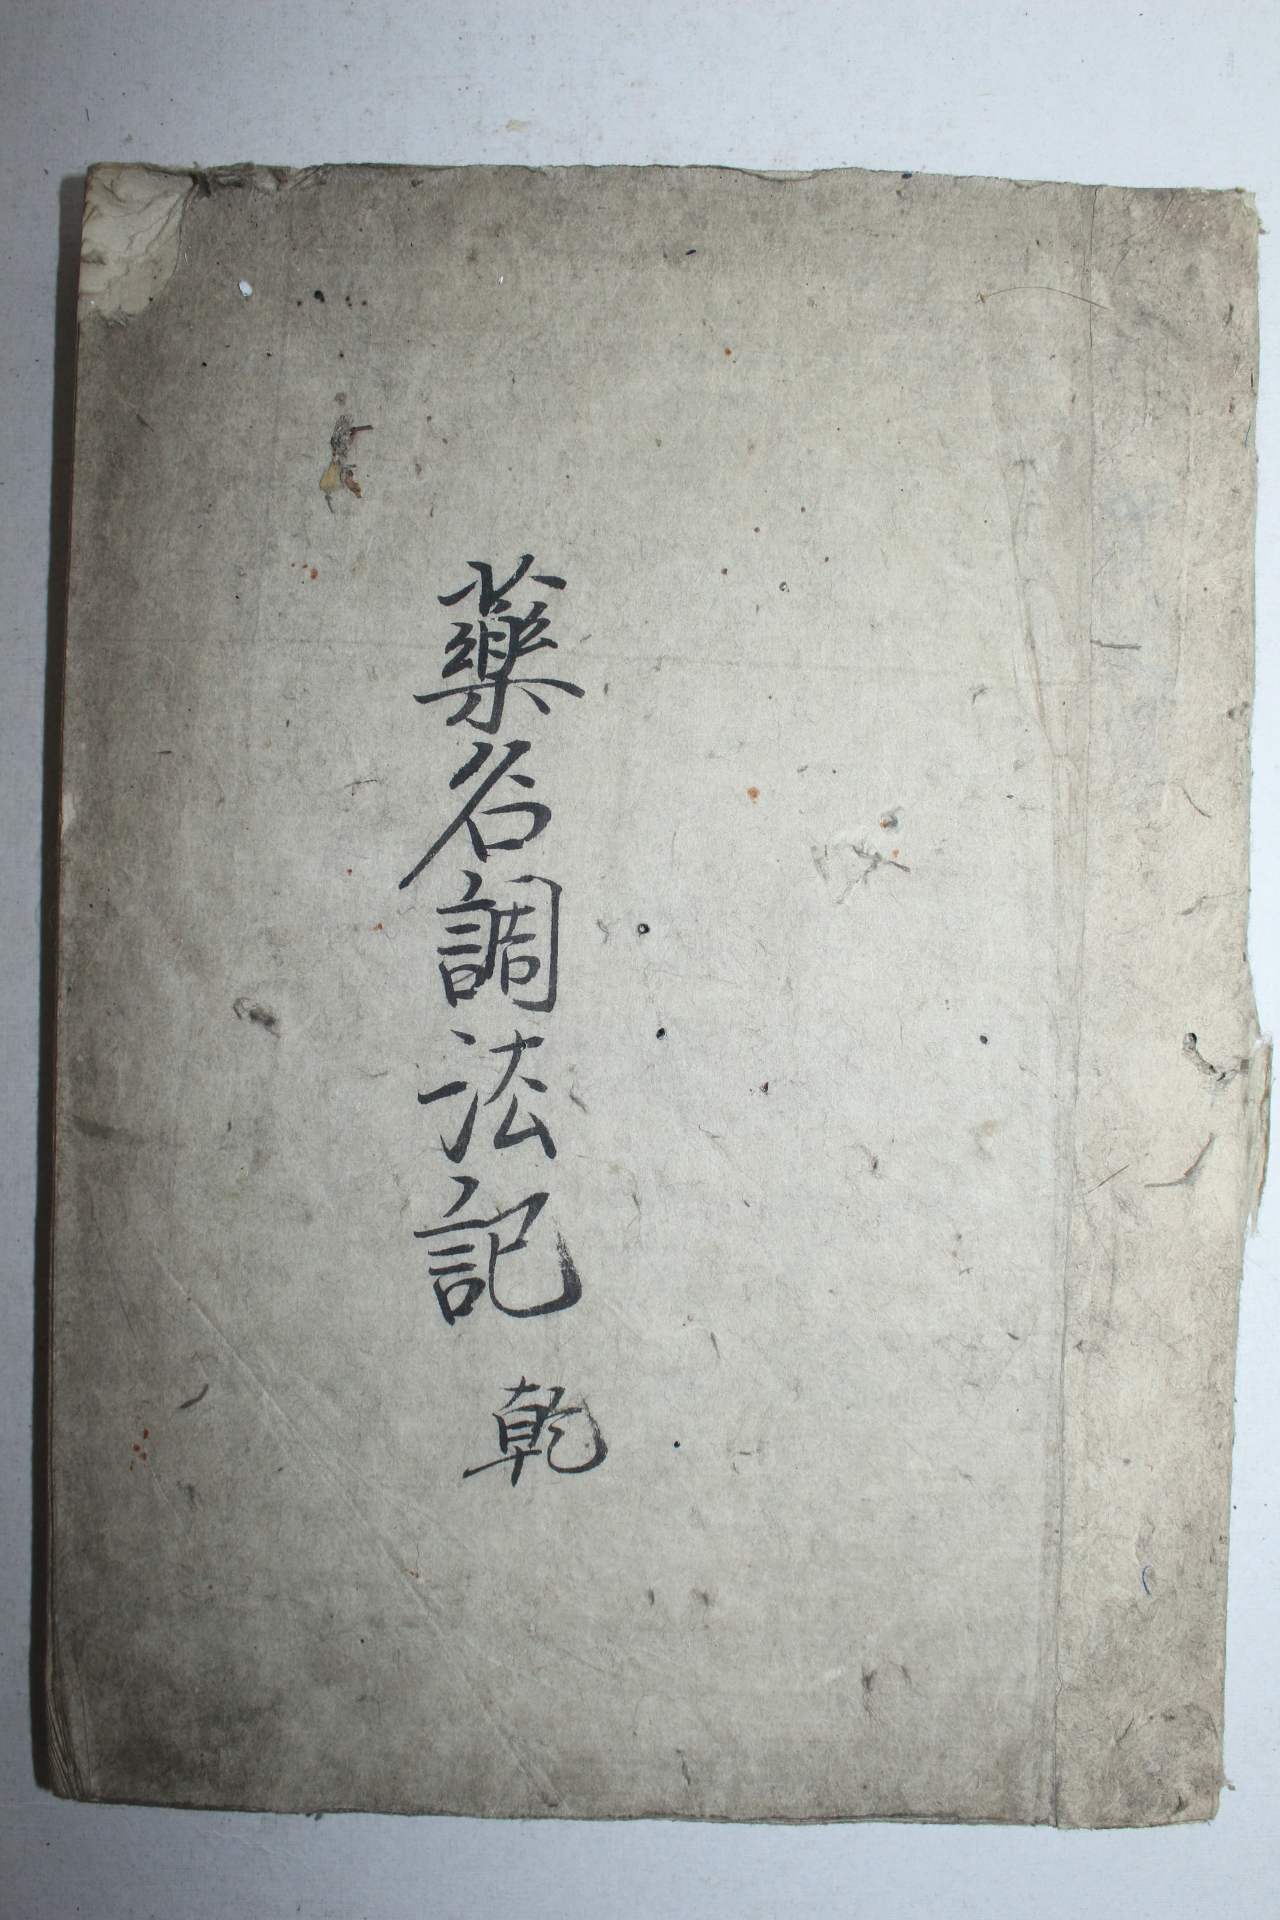 藥名調法記
乾